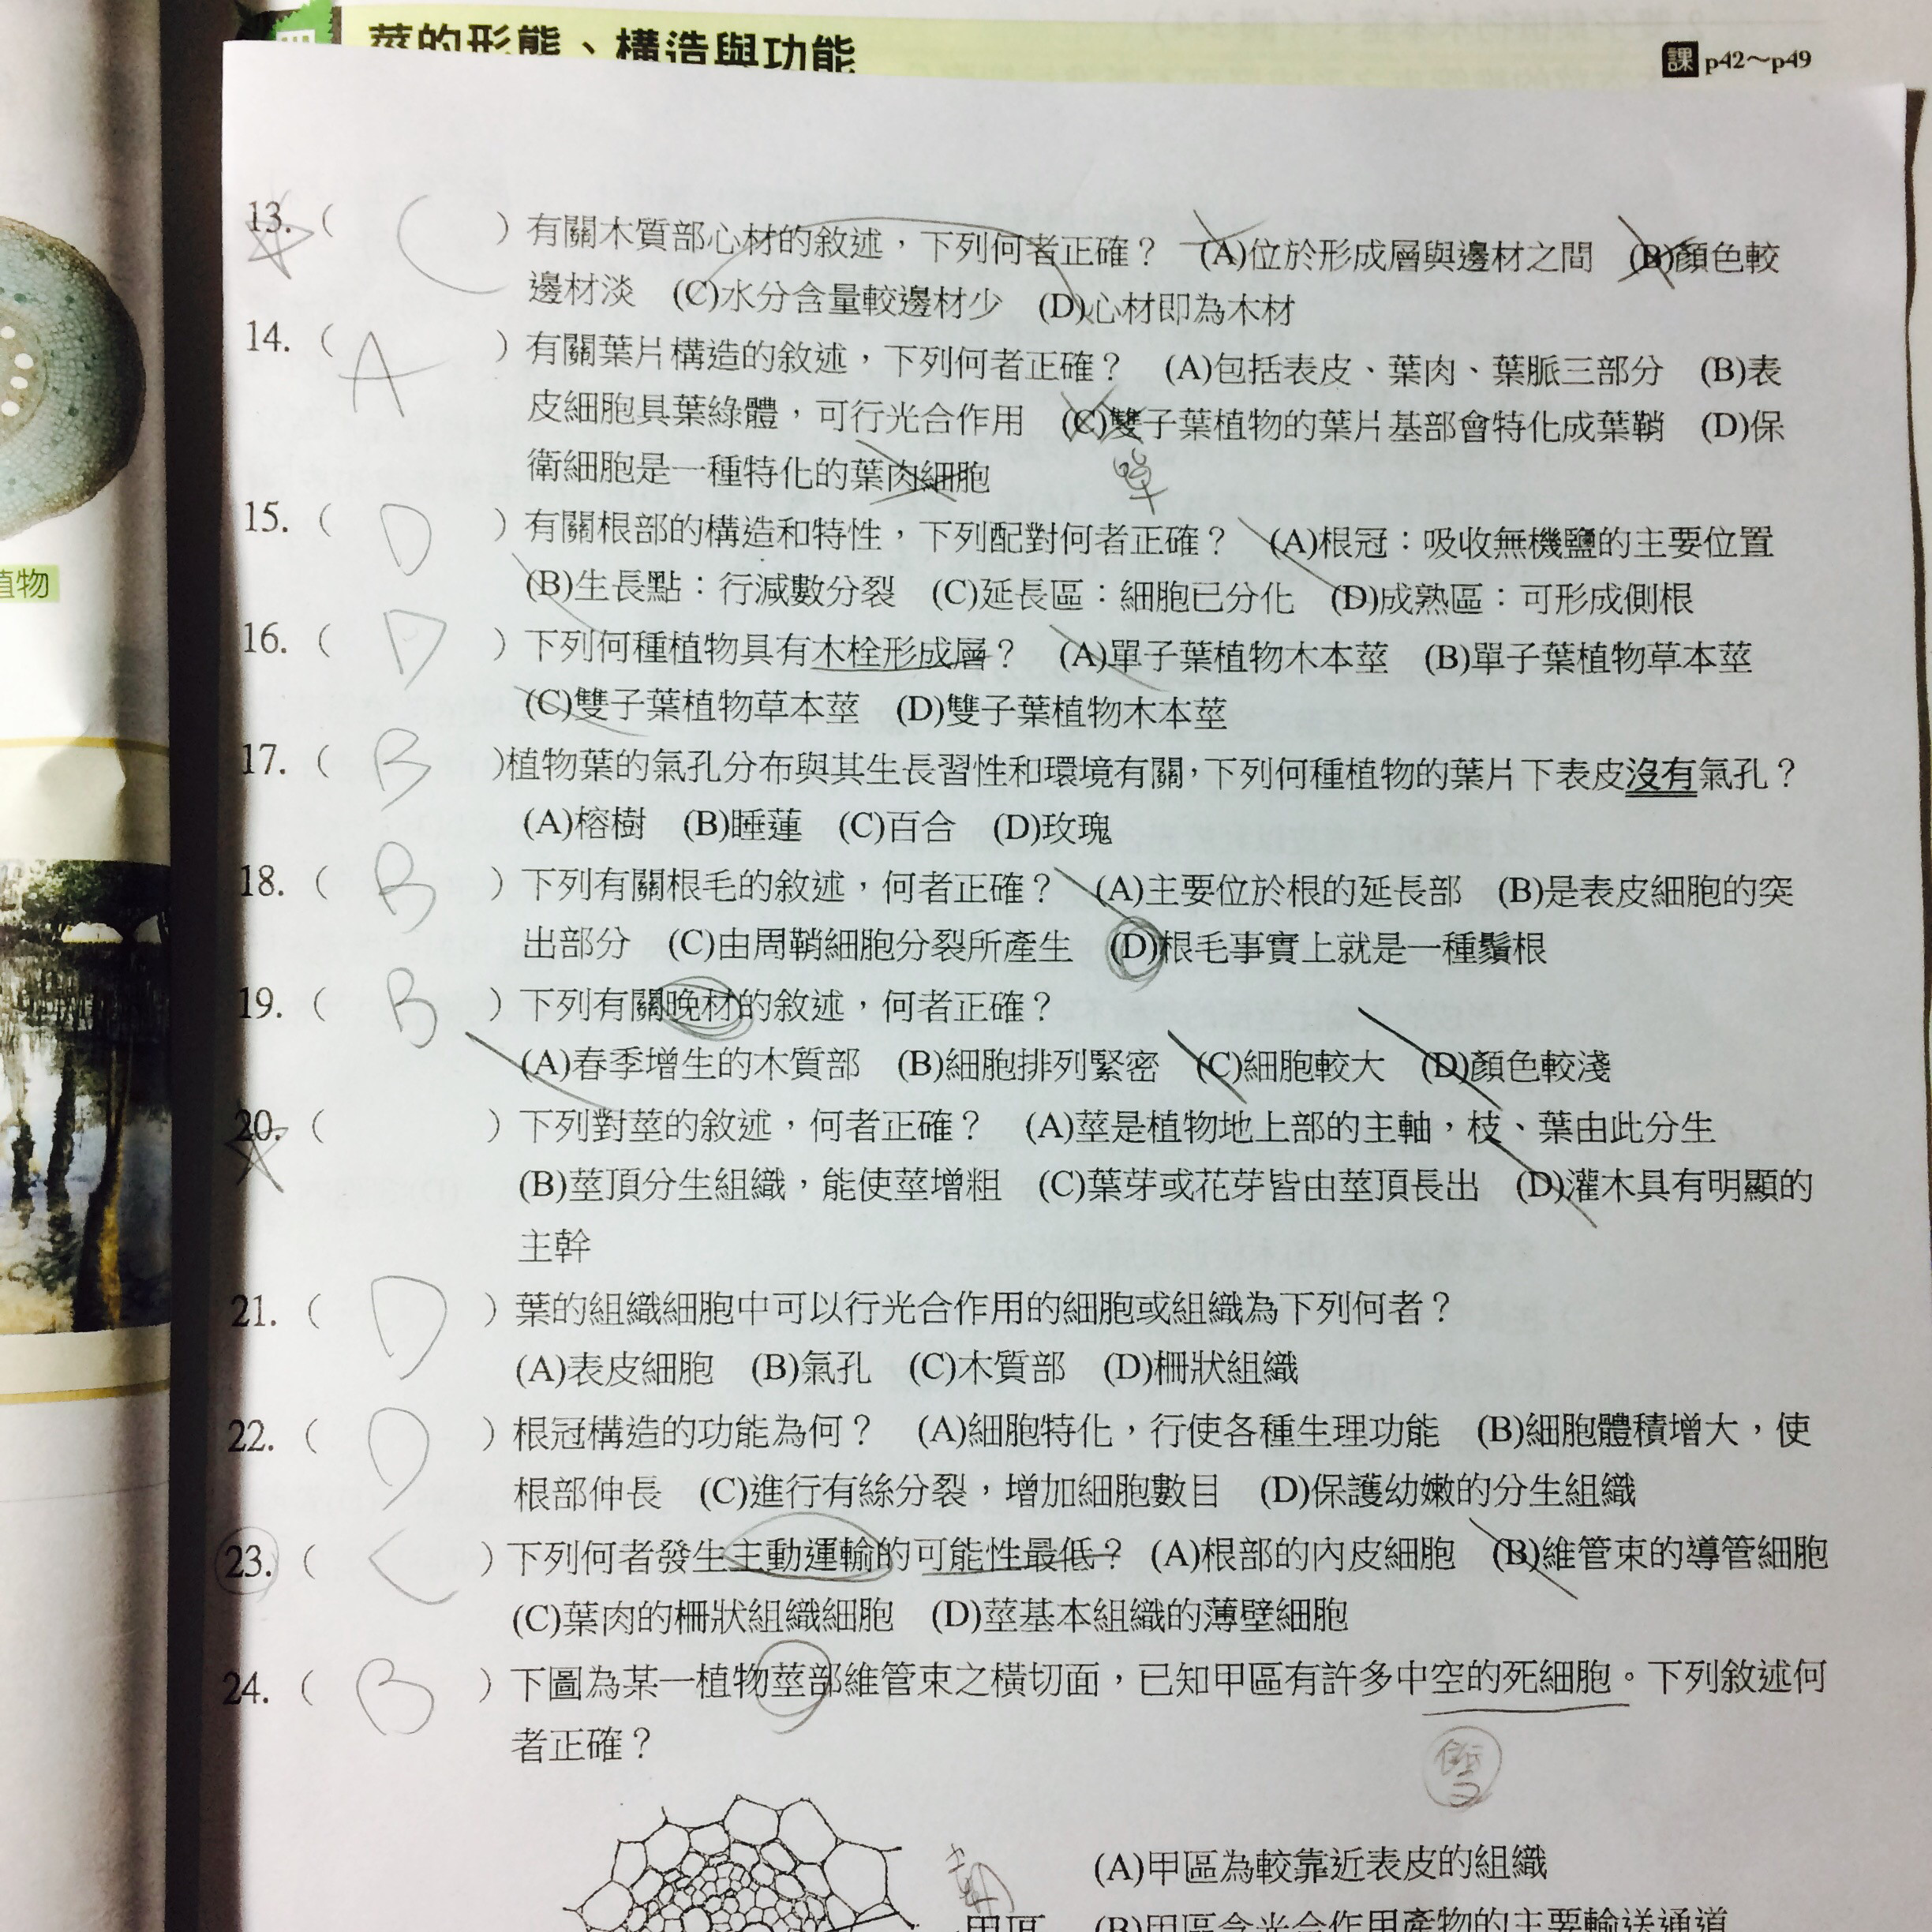 莖的形態、構造與功能
課 p42～p49
植物
13. ( C ) 有關木質部心材的敘述，下列何者正確？ (A)位於形成層與邊材之間 (B)顏色較
邊材淡 (C)水分含量較邊材少 (D)心材即為木材
14. ( A ) 有關葉片構造的敘述，下列何者正確？ (A)包括表皮、葉肉、葉脈三部分 (B)表
皮細胞具葉綠體，可行光合作用 (C)雙子葉植物的葉片基部會特化成葉鞘 (D)保
單
衛細胞是一種特化的葉肉細胞
15. ( D ) 有關根部的構造和特性，下列配對何者正確？ (A)根冠：吸收無機鹽的主要位置
(B)生長點：行減數分裂 (C)延長區：細胞已分化 (D)成熟區：可形成側根
16. ( D ) 下列何種植物具有木栓形成層？ (A)單子葉植物木本莖 (B)單子葉植物草本莖
(C)雙子葉植物草本莖 (D)雙子葉植物木本莖
17. ( B )植物葉的氣孔分布與其生長習性和環境有關，下列何種植物的葉片下表皮沒有氣孔？
(A)榕樹 (B)睡蓮 (C)百合 (D)玫瑰
18. ( B ) 下列有關根毛的敘述，何者正確？ (A)主要位於根的延長部 (B)是表皮細胞的突
出部分 (C)由周鞘細胞分裂所產生 (D)根毛事實上就是一種鬚根
19. ( B ) 下列有關晚材的敘述，何者正確？
(A)春季增生的木質部 (B)細胞排列緊密 (C)細胞較大 (D)顏色較淺
20. ( ) 下列對莖的敘述，何者正確？ (A)莖是植物地上部的主軸，枝、葉由此分生
(B)莖頂分生組織，能使莖增粗 (C)葉芽或花芽皆由莖頂長出 (D)灌木具有明顯的
主幹
21. ( D ) 葉的組織細胞中可以行光合作用的細胞或組織為下列何者？
(A)表皮細胞 (B)氣孔 (C)木質部 (D)柵狀組織
22. ( D ) 根冠構造的功能為何？ (A)細胞特化，行使各種生理功能 (B)細胞體積增大，使
根部伸長 (C)進行有絲分裂，增加細胞數目 (D)保護幼嫩的分生組織
23. ( C ) 下列何者發生主動運輸的可能性最低？ (A)根部的內皮細胞 (B)維管束的導管細胞
(C)葉肉的柵狀組織細胞 (D)莖基本組織的薄壁細胞
24. ( B ) 下圖為某一植物莖部維管束之橫切面，已知甲區有許多中空的死細胞。下列敘述何
者正確？
(A)甲區為較靠近表皮的組織
甲區
(B)甲區含光合作用產物的主要輸送通道